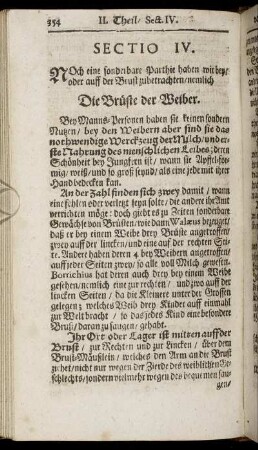 354 II. Theil/ Sect. IV.
SECTIO IV.
NOch eine sonderbare Parthie haben wir bey
oder auff der Brust zubetrachten/nemlich
Die Brüste der Weiber.
Bey Manns-Personen haben sie keinen sondern
Nutzen/ bey den Weibern aber sind sie das
nothwendige Werckzeug der Milch/ und er-
ste Nahrung des menschlichen Leibes: deren
Schönheit bey Jungfern ist/ wann sie Apffel-för-
mig/ weiß/ und so groß seynd/ als eine jede mit ihrer
Hand bedecken kan.
An der Zahl finden sich zwey damit/ wann
eine fehlen oder verletzt seyn solte/ die andere ihr Amt
verrichten möge: doch gibt es zu Zeiten sonderbare
Gewächse von Brüsten/ wie dann Walæus bezeuget/
daß er bey einem Weibe drey Brüste angetroffen/
zwey auff der lincken/ und eine auf der rechten Sei-
te. Andere haben deren 4 bey Weibern angetroffen/
auff jeder Seiten zwey/ so alle voll Milch gewesen.
Borrichius hat deren auch drey bey einem Weibe
gesehen/nemlich eine zur rechten/ und zwo auf der
lincken Seiten/ da die kleinere unter der Grossen
gelegen; welches Weib drey Kinder auff einmahl
zur Welt bracht/ so daß jedes Kind eine besondere
Brust/ daran zu saugen/ gehabt.
Ihr Ort oder Lager ist mitten auff der
Brust/ zur Rechten und zur Lincken/ über dem
Brust-Mäußlein/ welches den Arm an die Brust
zuhet/nicht nur wegen der Zierde des weiblichen Ge-
schlechts/ sondern vielmehr wegen des bequemen sau-
gen/